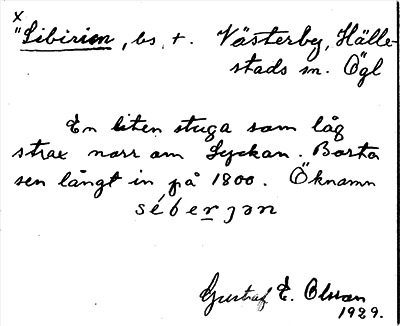 x
"Sibirien, bs, t. Västerby, Hälle-
stads sn. Ögl
En liten stuga som låg
strax norr om Lyckan. Borta
sen långt in på 1800. Öknamn
sé b e r j ə n
Gustaf E. Olsson
1929.